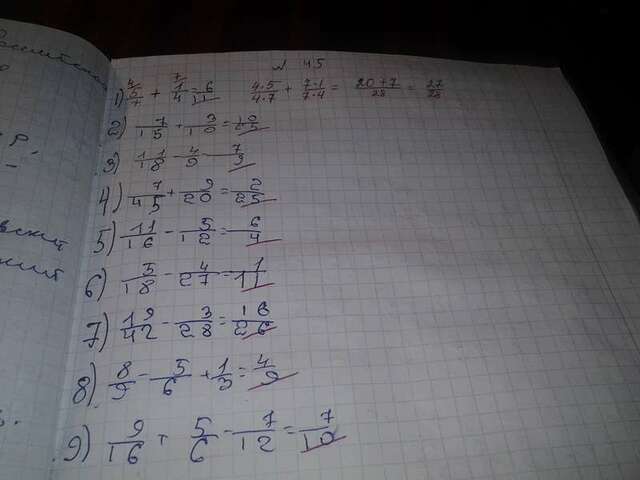 № 45
1) 4/ 5/7 + 7/ 1/4 = 6/11 4·5/4·7 + 7·1/7·4 = 20+7/28 = 27/28
2) 7/15 + 3/10 = 10/25
3) 11/18 - 4/9 - 7/9
4) 7/45 + 9/20 = 2/25
5) 11/16 - 5/12 = 6/4
6) 5/18 - 4/27 = 1/11
7) 19/42 - 3/28 = 16/26
8) 8/9 - 5/6 + 1/3 = 4/9
9) 9/16 + 5/6 - 7/12 = 7/10